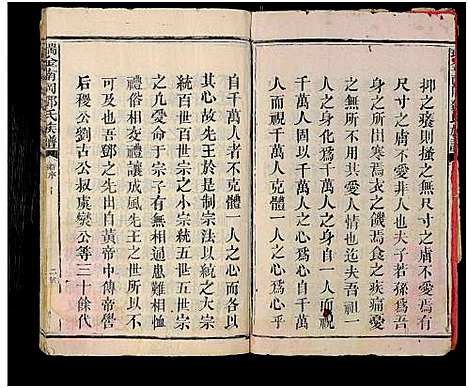 抑之癢則搔之無尺寸之膚不愛無
尺寸之膚不愛非人也夫子若孫爲吾
身之所出寒爲之衣饑爲食之疾痛愛
之無所不用其愛所不迨夫吾祖一
人之身化爲千萬人之身自千萬人而視
千萬人不克體一人之心爲心自千萬
人而視千萬人不克體一人之心爲心乎
自千萬人者不克體一人之心而各以
其心故先王於是制宗法以統之大宗
統百世小宗之宗統五世五世百世
之凡受命于宗子有無相通患難相恤
禮俗相成禮讓成風先王之世所以不
可及也吾之先出自黃帝中傳帝嚳
后稷公劉古公叔虞爕公等三十餘代
瑞金南岡郭氏族譜